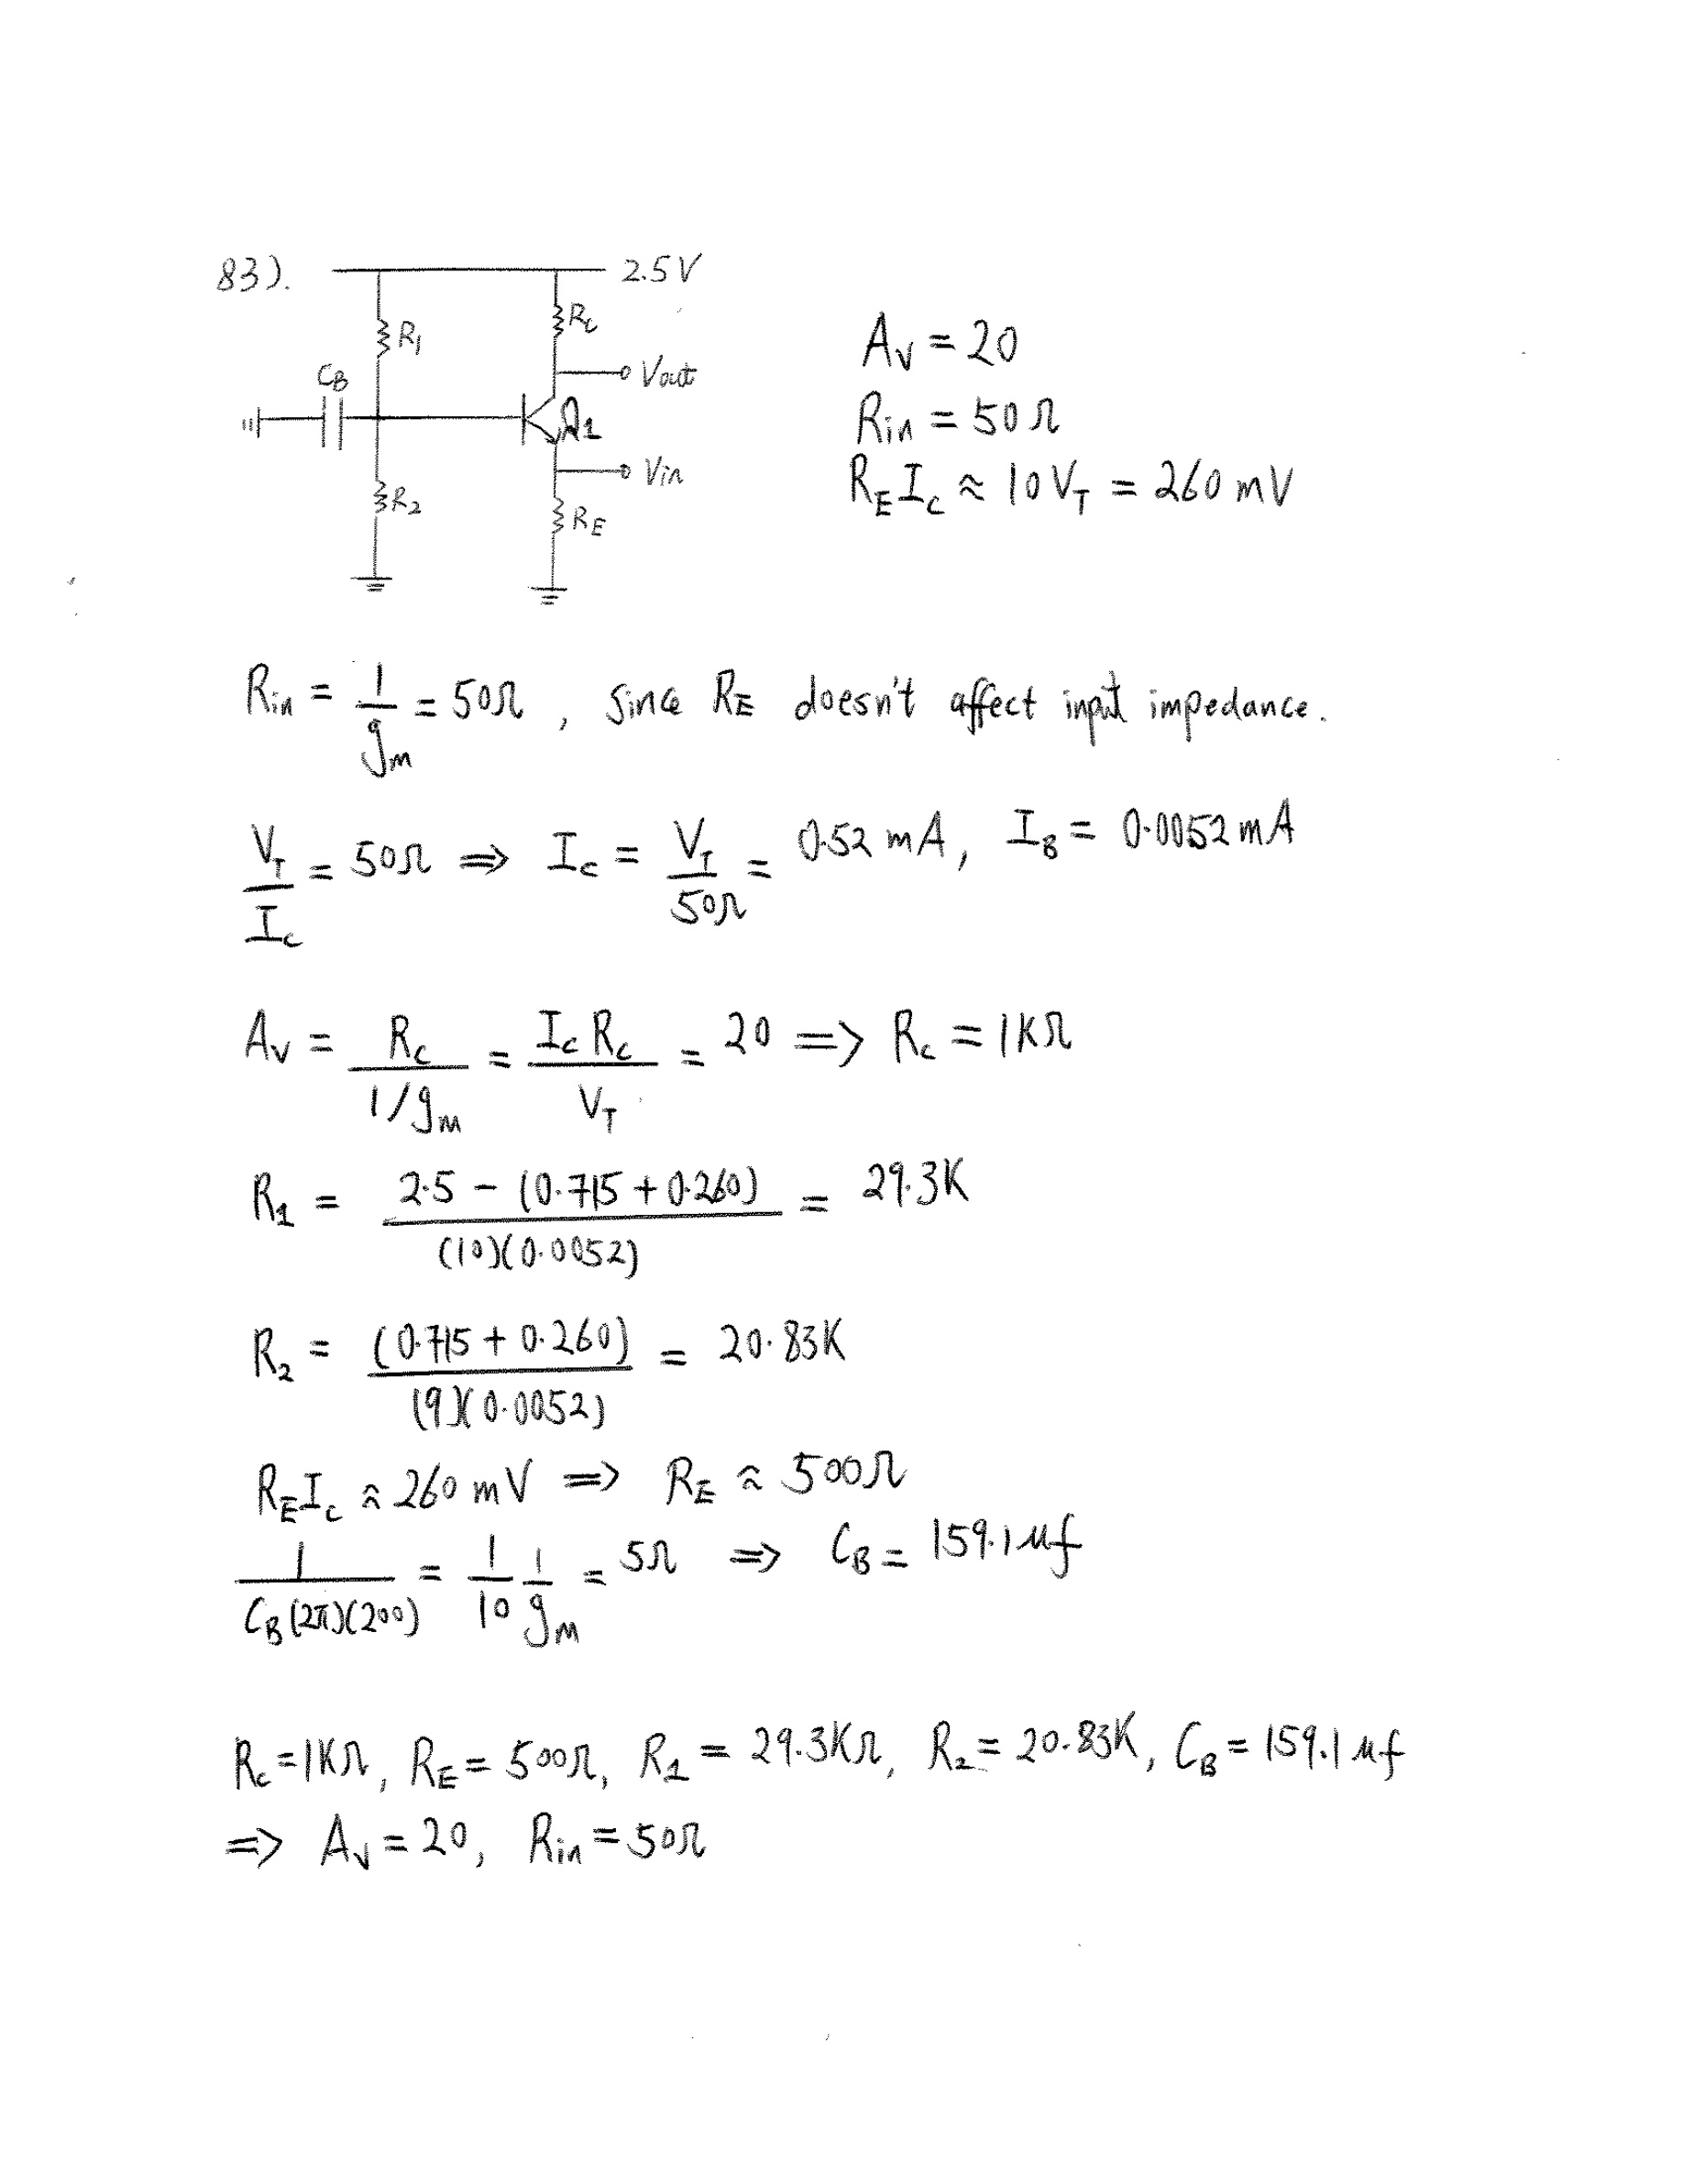 83).
2.5V
R1
Rc
CB
Vout
Q1
Vin
R2
RE
Av = 20
Rin = 50Ω
REIc ≈ 10VT = 260mV
Rin = 1/gm = 50Ω, since RE doesn't affect input impedance.
VT/Ic = 50Ω ⇒ Ic = VT/50Ω = 0.52 mA, IB = 0.0052 mA
Av = Rc/(1/gm) = IcRc/VT = 20 ⇒ Rc = 1KΩ
R1 = (2.5 - (0.715 + 0.260))/((10)(0.0052)) = 29.3K
R2 = (0.715 + 0.260)/((9)(0.0052)) = 20.83K
REIc ≈ 260mV ⇒ RE ≈ 500Ω
1/(CB(2π)(200)) = 1/10 1/gm = 5Ω ⇒ CB = 159.1 μf
Rc = 1KΩ, RE = 500Ω, R1 = 29.3KΩ, R2 = 20.83K, CB = 159.1 μf
⇒ Av = 20, Rin = 50Ω